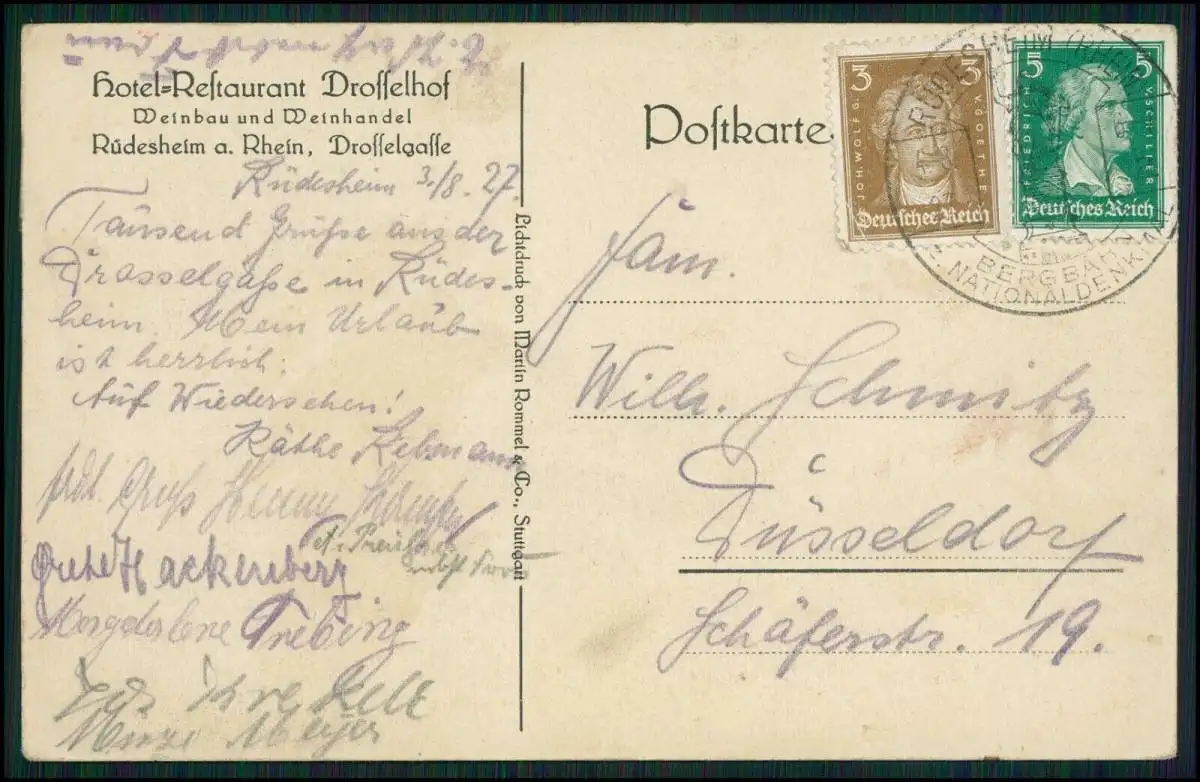 Hotel=Restaurant Drosselhof
Weinbau und Weinhandel
Rüdesheim a. Rhein, Drosselgasse
Rüdesheim 3./8. 27.
Tausend Grüße aus der
Drosselgaße in Rüdes-
heim. Mein Urlaub
ist herrlich.
Auf Wiedersehen!
Käthe Rebmann
Gruß Henny
Grete Hackenberg
Magdalene Trebing
Krekele
Minze Meyer
Lichtdruck von Martin Rommel & Co., Stuttgart
Postkarte
3 3
JOH. WOLFG. V GOETHE
Deutsches Reich
5 5
FRIEDRICH V SCHILLER
Deutsches Reich
RÜDESHEIM (RHEIN)
BERGBAHN
NATIONALDENKMAL
Fam.
Willi. Schmitz
Düsseldorf
Schäferstr. 19.